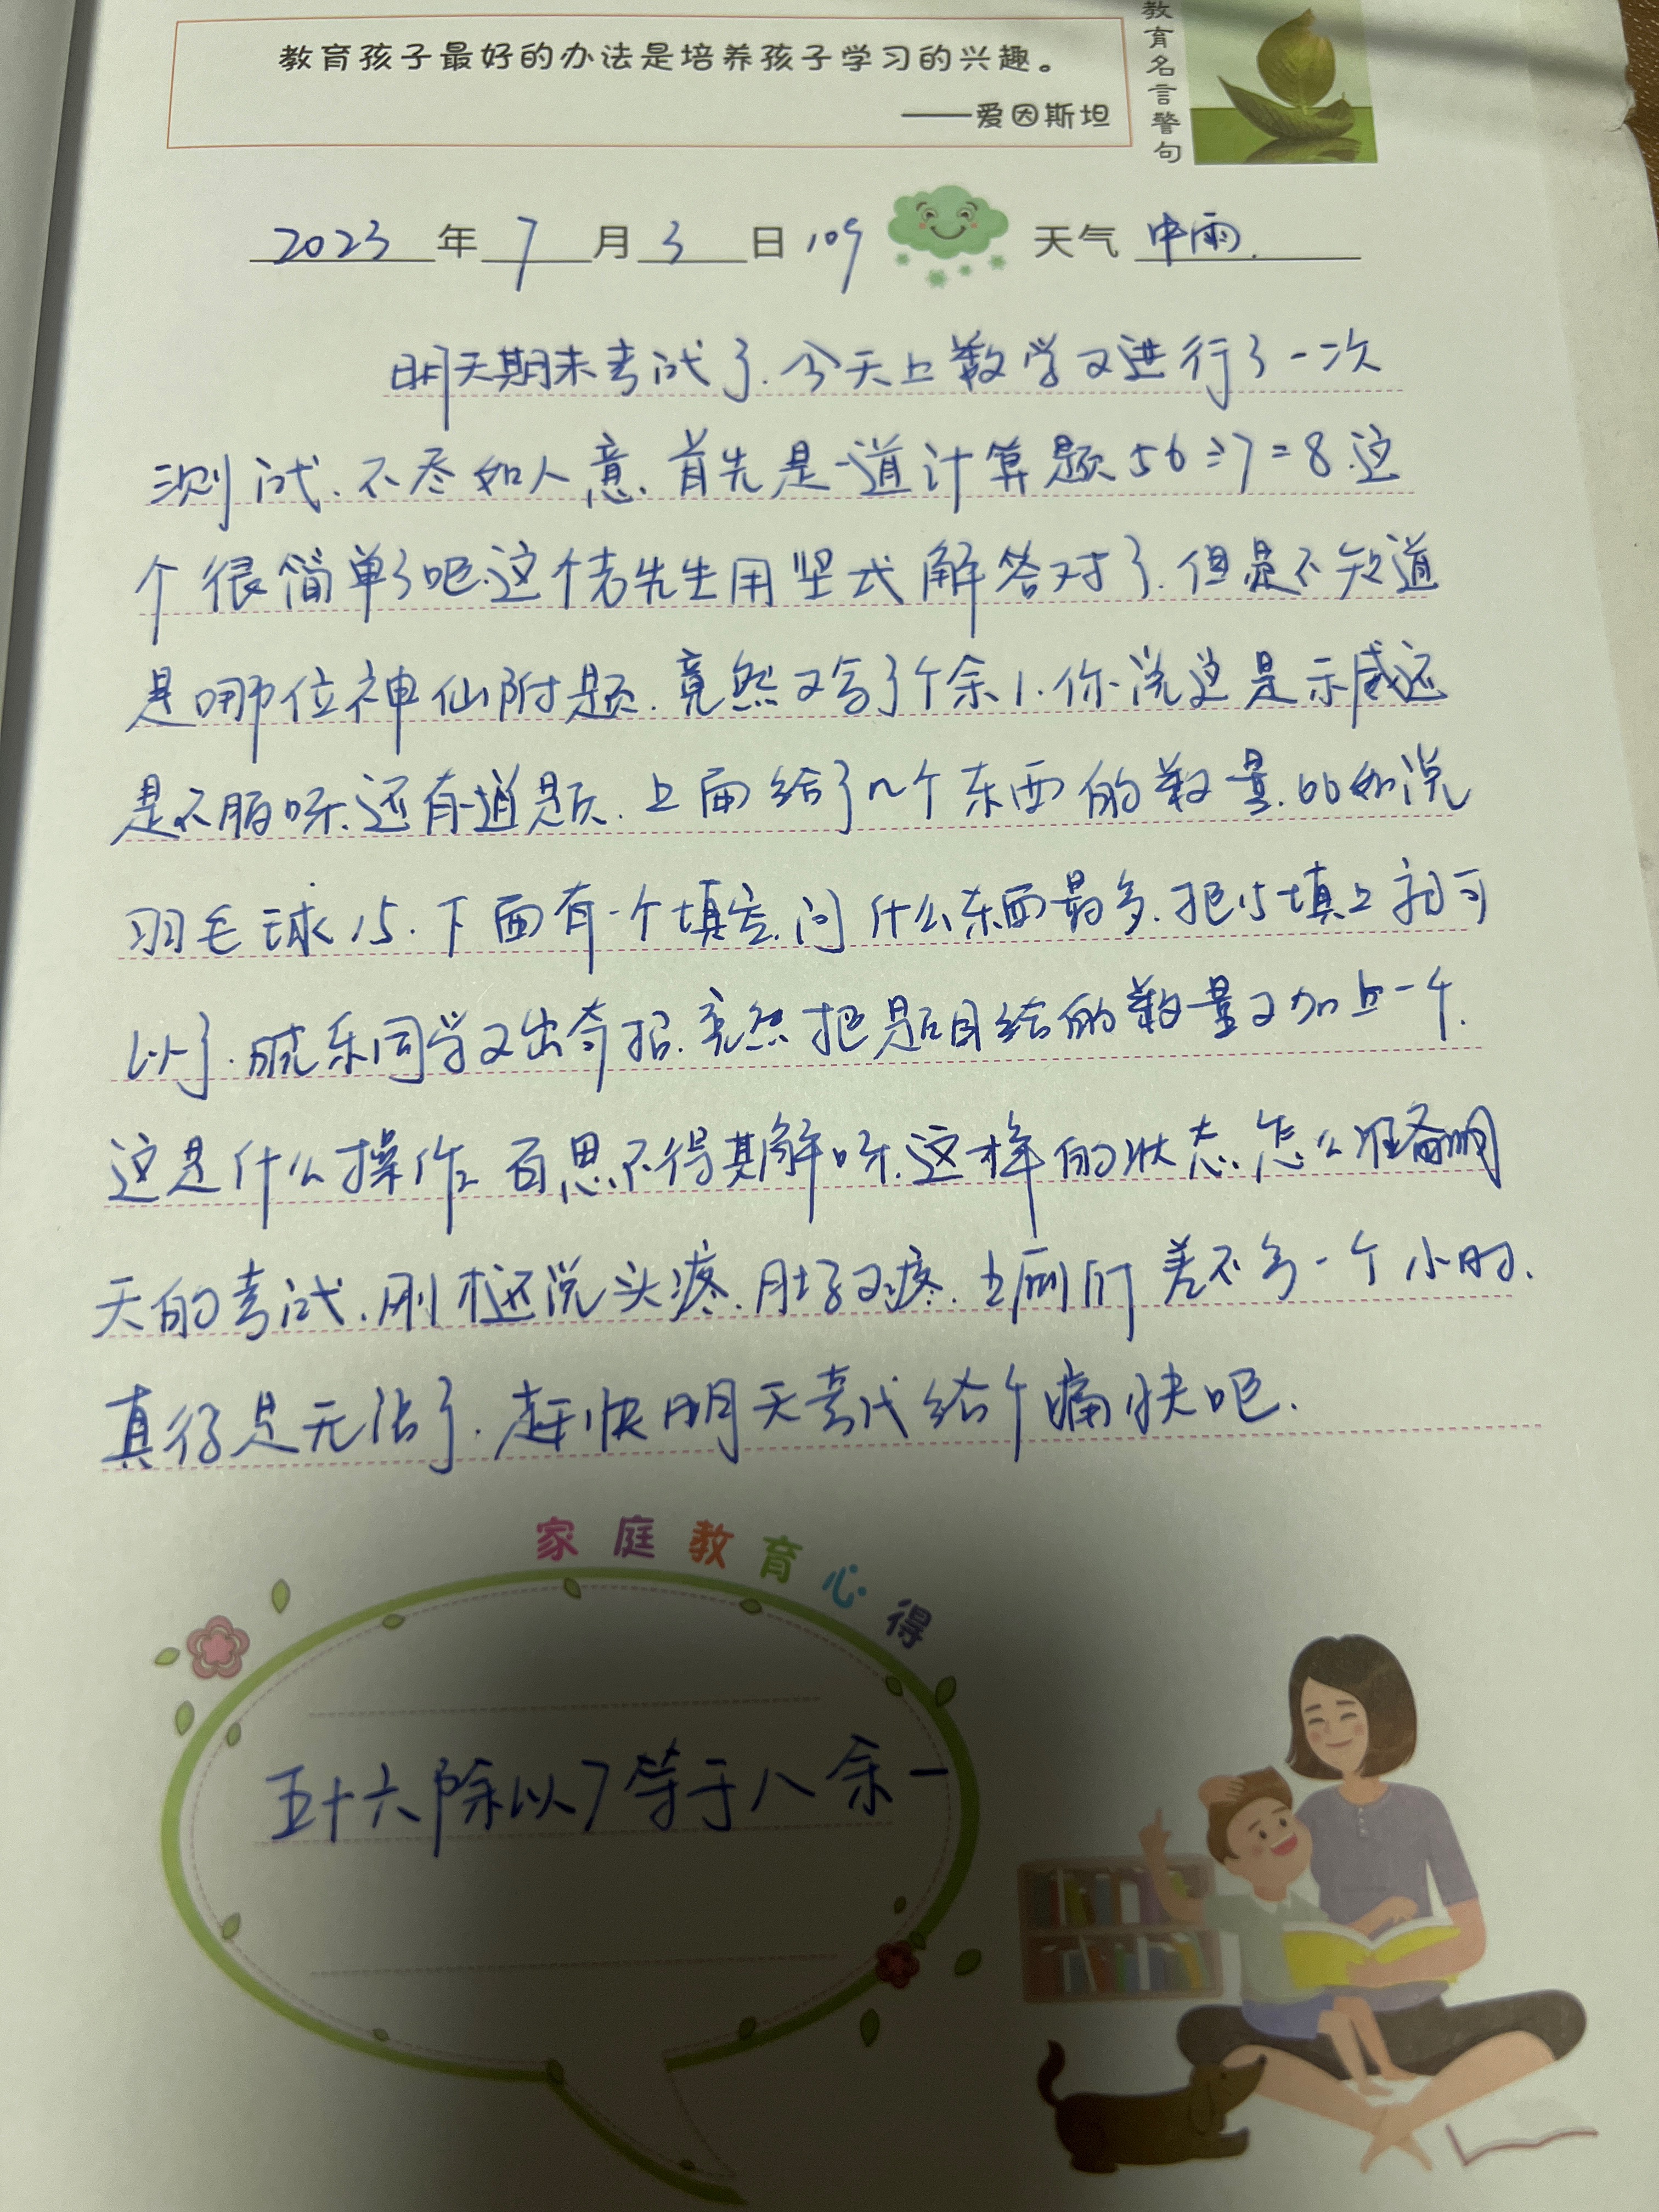 教育孩子最好的办法是培养孩子学习的兴趣。
——爱因斯坦
教育名言警句
2023年7月3日 109 天气 中雨.
明天期末考试了.今天上数学又进行了一次
测试.不尽如人意.首先是一道计算题56÷7=8.这
个很简单了吧.这个老先生用竖式解答对了.但是不知道
是哪位神仙附题.竟然又写了个余1.你说这是示威还
是不服呀.还有一道题.上面给了几个东西的数量.比如说
羽毛球15.下面有一个填空.问什么东西最多.把15填上就可
以了.乐同学又出奇招.竟然把题目给的数量又加上一个.
这是什么操作.百思不得其解呀.这样的状态.怎么准备明
天的考试.刚才还说头疼.肚子又疼.上厕所差不多一个小时.
真得是无法了.赶快明天考试给个痛快吧.
家庭教育心得
五十六除以7等于八余一